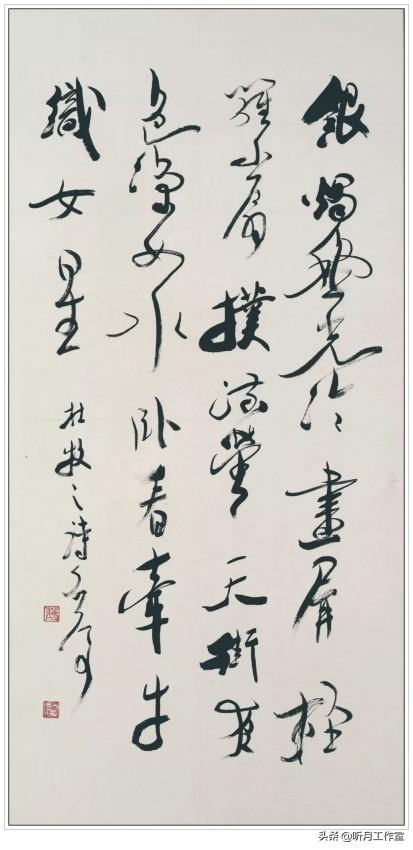 銀燭秋光冷畫屏輕
羅小扇撲流螢天街夜
色涼如水卧看牽牛
織女星 杜牧之詩
头条 @听月工作室